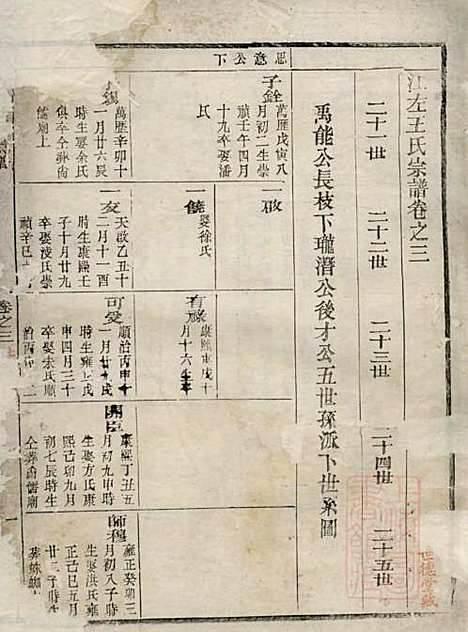 江左王氏宗譜卷之三
二十一世
二十二世
二十三世
二十四世
二十五世
禹能公長枝下瓏潛公後才公五世孫派下世系圖
思意公下
子銓
萬歷戊寅八
月初二生崇
禎壬午四月
十九卒娶潘
氏
萬歷辛卯十
一月廿六辰
時生娶余氏
俱卒仝葬
儒廟上
一啟
一饒
娶徐氏
一亥
天啟乙丑十
二月十一酉
時生康熙壬
子十月廿九
卒娶凌氏崇
禎辛巳
有
康熙庚戌十
月十六生
可愛
順治丙申十
一月廿戌
時生雍上戌
申四月三十
卒娶朱氏順
治丙申
開臣
康熙丁丑五
月初九申時
生娶方氏康
熙己卯九月
初七辰時生
仝葬儒廟
師穆
雍正癸卯三
月初八子時
生娶洪氏雍
正己巳五月
廿二子時
葬
卷之三